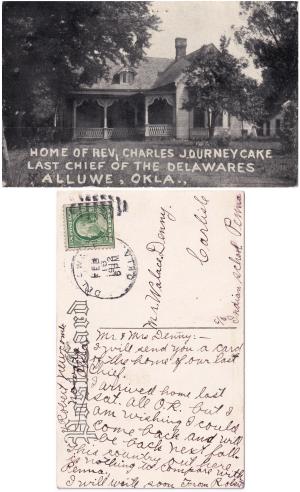 HOME OF REV. CHARLES JOURNEYCAKE
LAST CHIEF OF THE DELAWARES
ALLUWE, OKLA.,
FEB
1912
OKLA
Mrs Wallace Denny.
Carlisle
Indian school Penna
c/o
Post Card
Mr & Mrs Denny:-
I will send you a card
of this home of our last
Chief.
I arrived home last
sat. all O.K. but I
am wishing I could
come back and will
be back next fall
This country out here
is nothing to compare with
Penna.
I will write soon From Robert
Robert